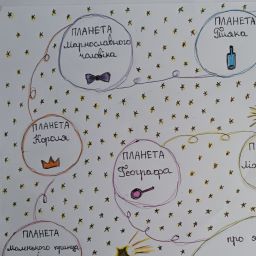 ПЛАНЕТА
Марнославного
чоловіка
ПЛАНЕТА
П'яка
ПЛАНЕТА
Короля
ПЛАНЕТА
Географа
ПЛАНЕТА
Маленького принца
про